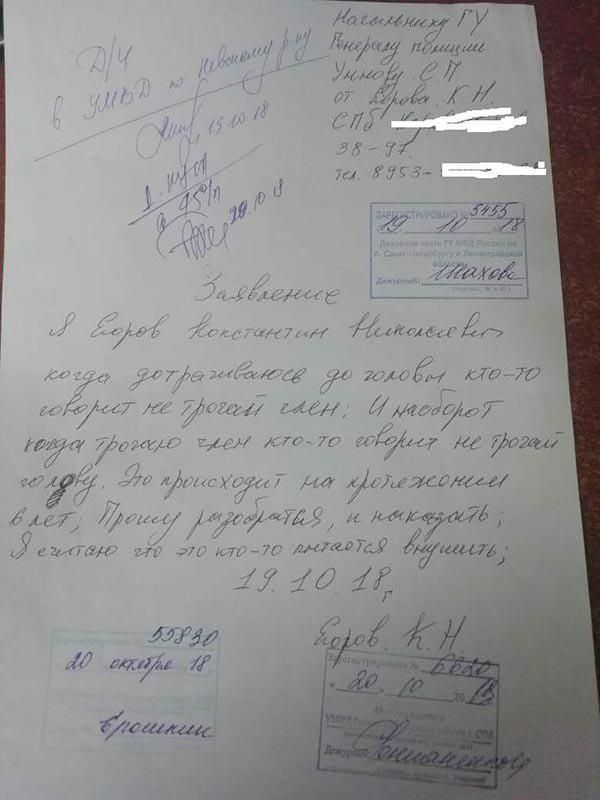 Начальнику ГУ
Генералу полиции
Умнову С П
от Егорова К. Н
СПб
38-97.
тел. 8953-
Д/Ч
в УМВД по Невскому р-ну
19 10 18
20.10 18
ЗАРЕГИСТРИРОВАНО № 5455
19. 10 .18
Дежурная часть ГУ МВД России по
г. Санкт-Петербургу и Ленинградской
области
Дежурный: Шахова
(подпись, Ф.И.О.)
Заявление
Я Егоров Константин Николаевич
когда дотрагиваюсь до головы кто-то
говорит не трогай член; И наоборот
когда трогаю член кто-то говорит не трогай
голову. Это происходит на протяжении
6 лет; Прошу разобраться, и наказать;
Я считаю что это кто-то пытается внушить;
19. 10. 18г.
Егоров. К. Н
55830
20 октября 18
Ерошкин
Зарегистрировано № 6620
« 20 » 10 20 18
Дежурный